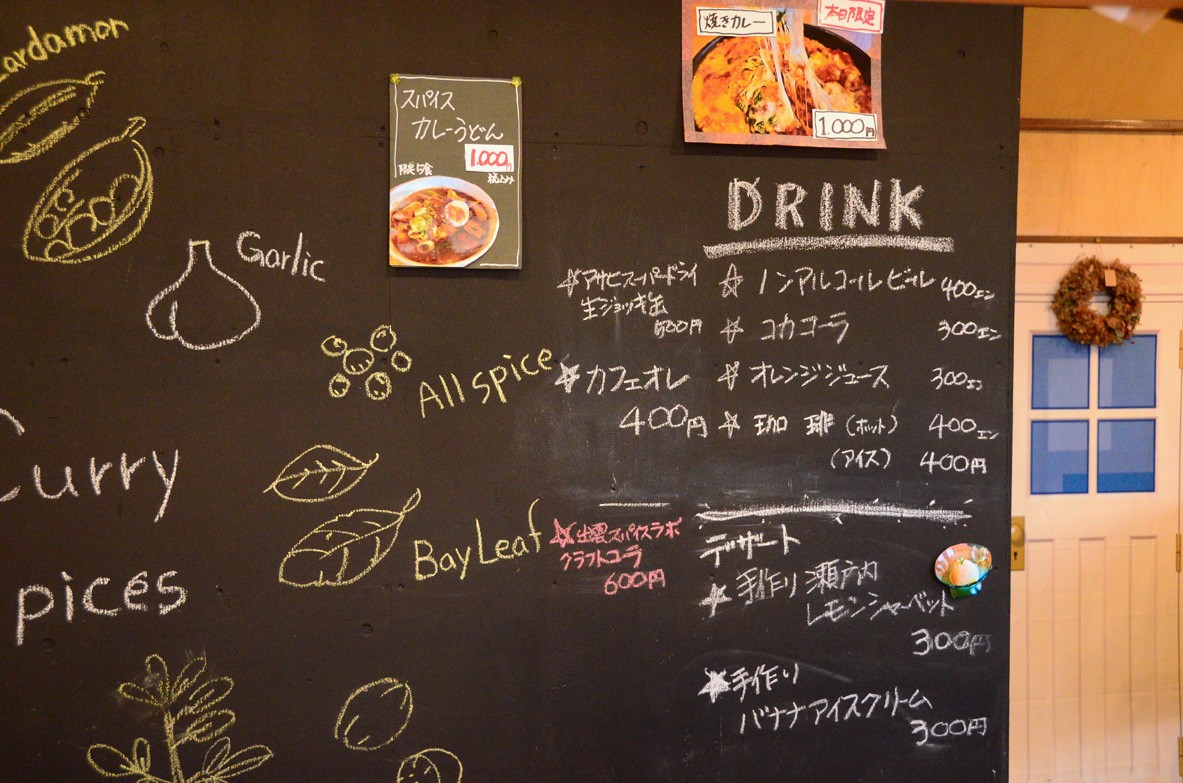 ardamon
Garlic
Allspice
Bay Leaf
urry
pices
スパイス
カレーうどん
1.000円
限定5食
税込み
焼きカレー
本日限定
1.000円
DRINK
☆アサヒスーパードライ
生ジョッキ缶
500円
☆カフェオレ
400円
☆ ノンアルコールビール 400エン
☆ コカコーラ 300エン
☆ オレンジジュース 300エン
☆ 珈琲 (ホット) 400エン
(アイス) 400円
☆出雲スパイスラボ
クラフトコーラ
600円
デザート
☆ 手作り 瀬戸内
レモンシャーベット
300円
☆手作り
バナナアイスクリーム
300円